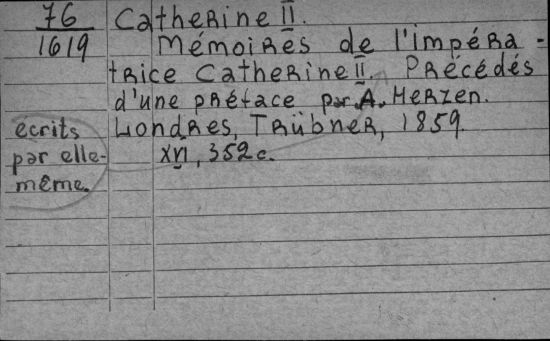 76
1619
Catherine II.
Mémoires de l'impéra-
trice Catherine II. Précédés
d'une préface par A. Herzen.
Londres, Trübner, 1859.
XVI, 352 c.
écrits
par elle-
même.